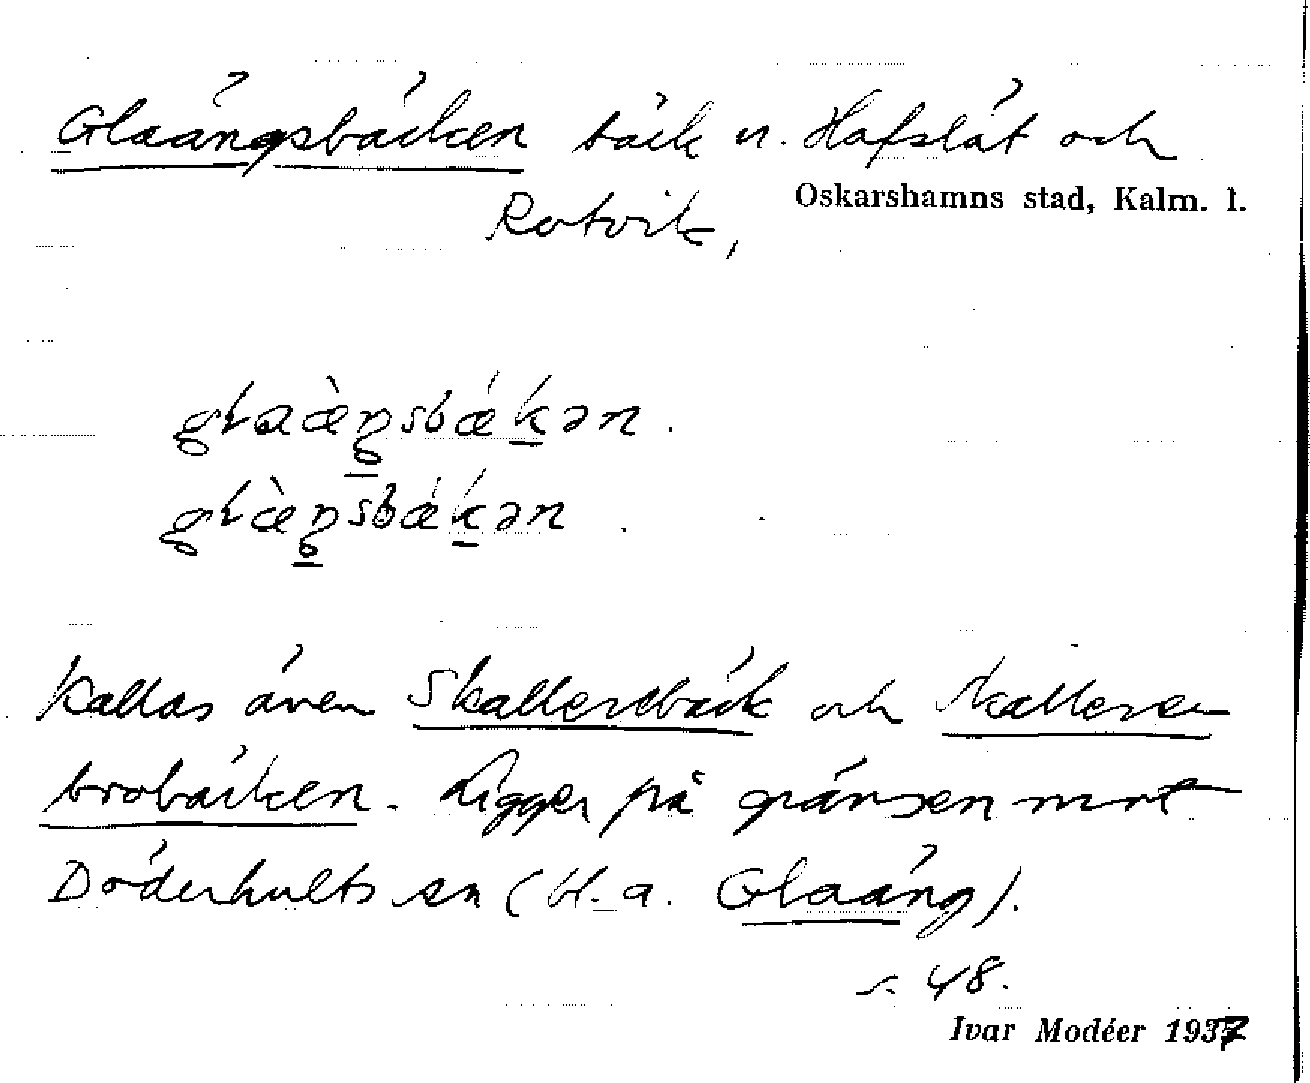 Glaängsbäcken bäck n. Hafslät och
Oskarshamns stad, Kalm. l.
Rotvik,
glaæ̀ŋsbǽkən.
glæ̀ŋsbǽkən.
Kallas även Skallerdbäck och Skallerse
brobäcken. Ligger på gränsen mot
Döderhults sn (bl. a. Glaäng).
s. 48.
Ivar Modéer 1937